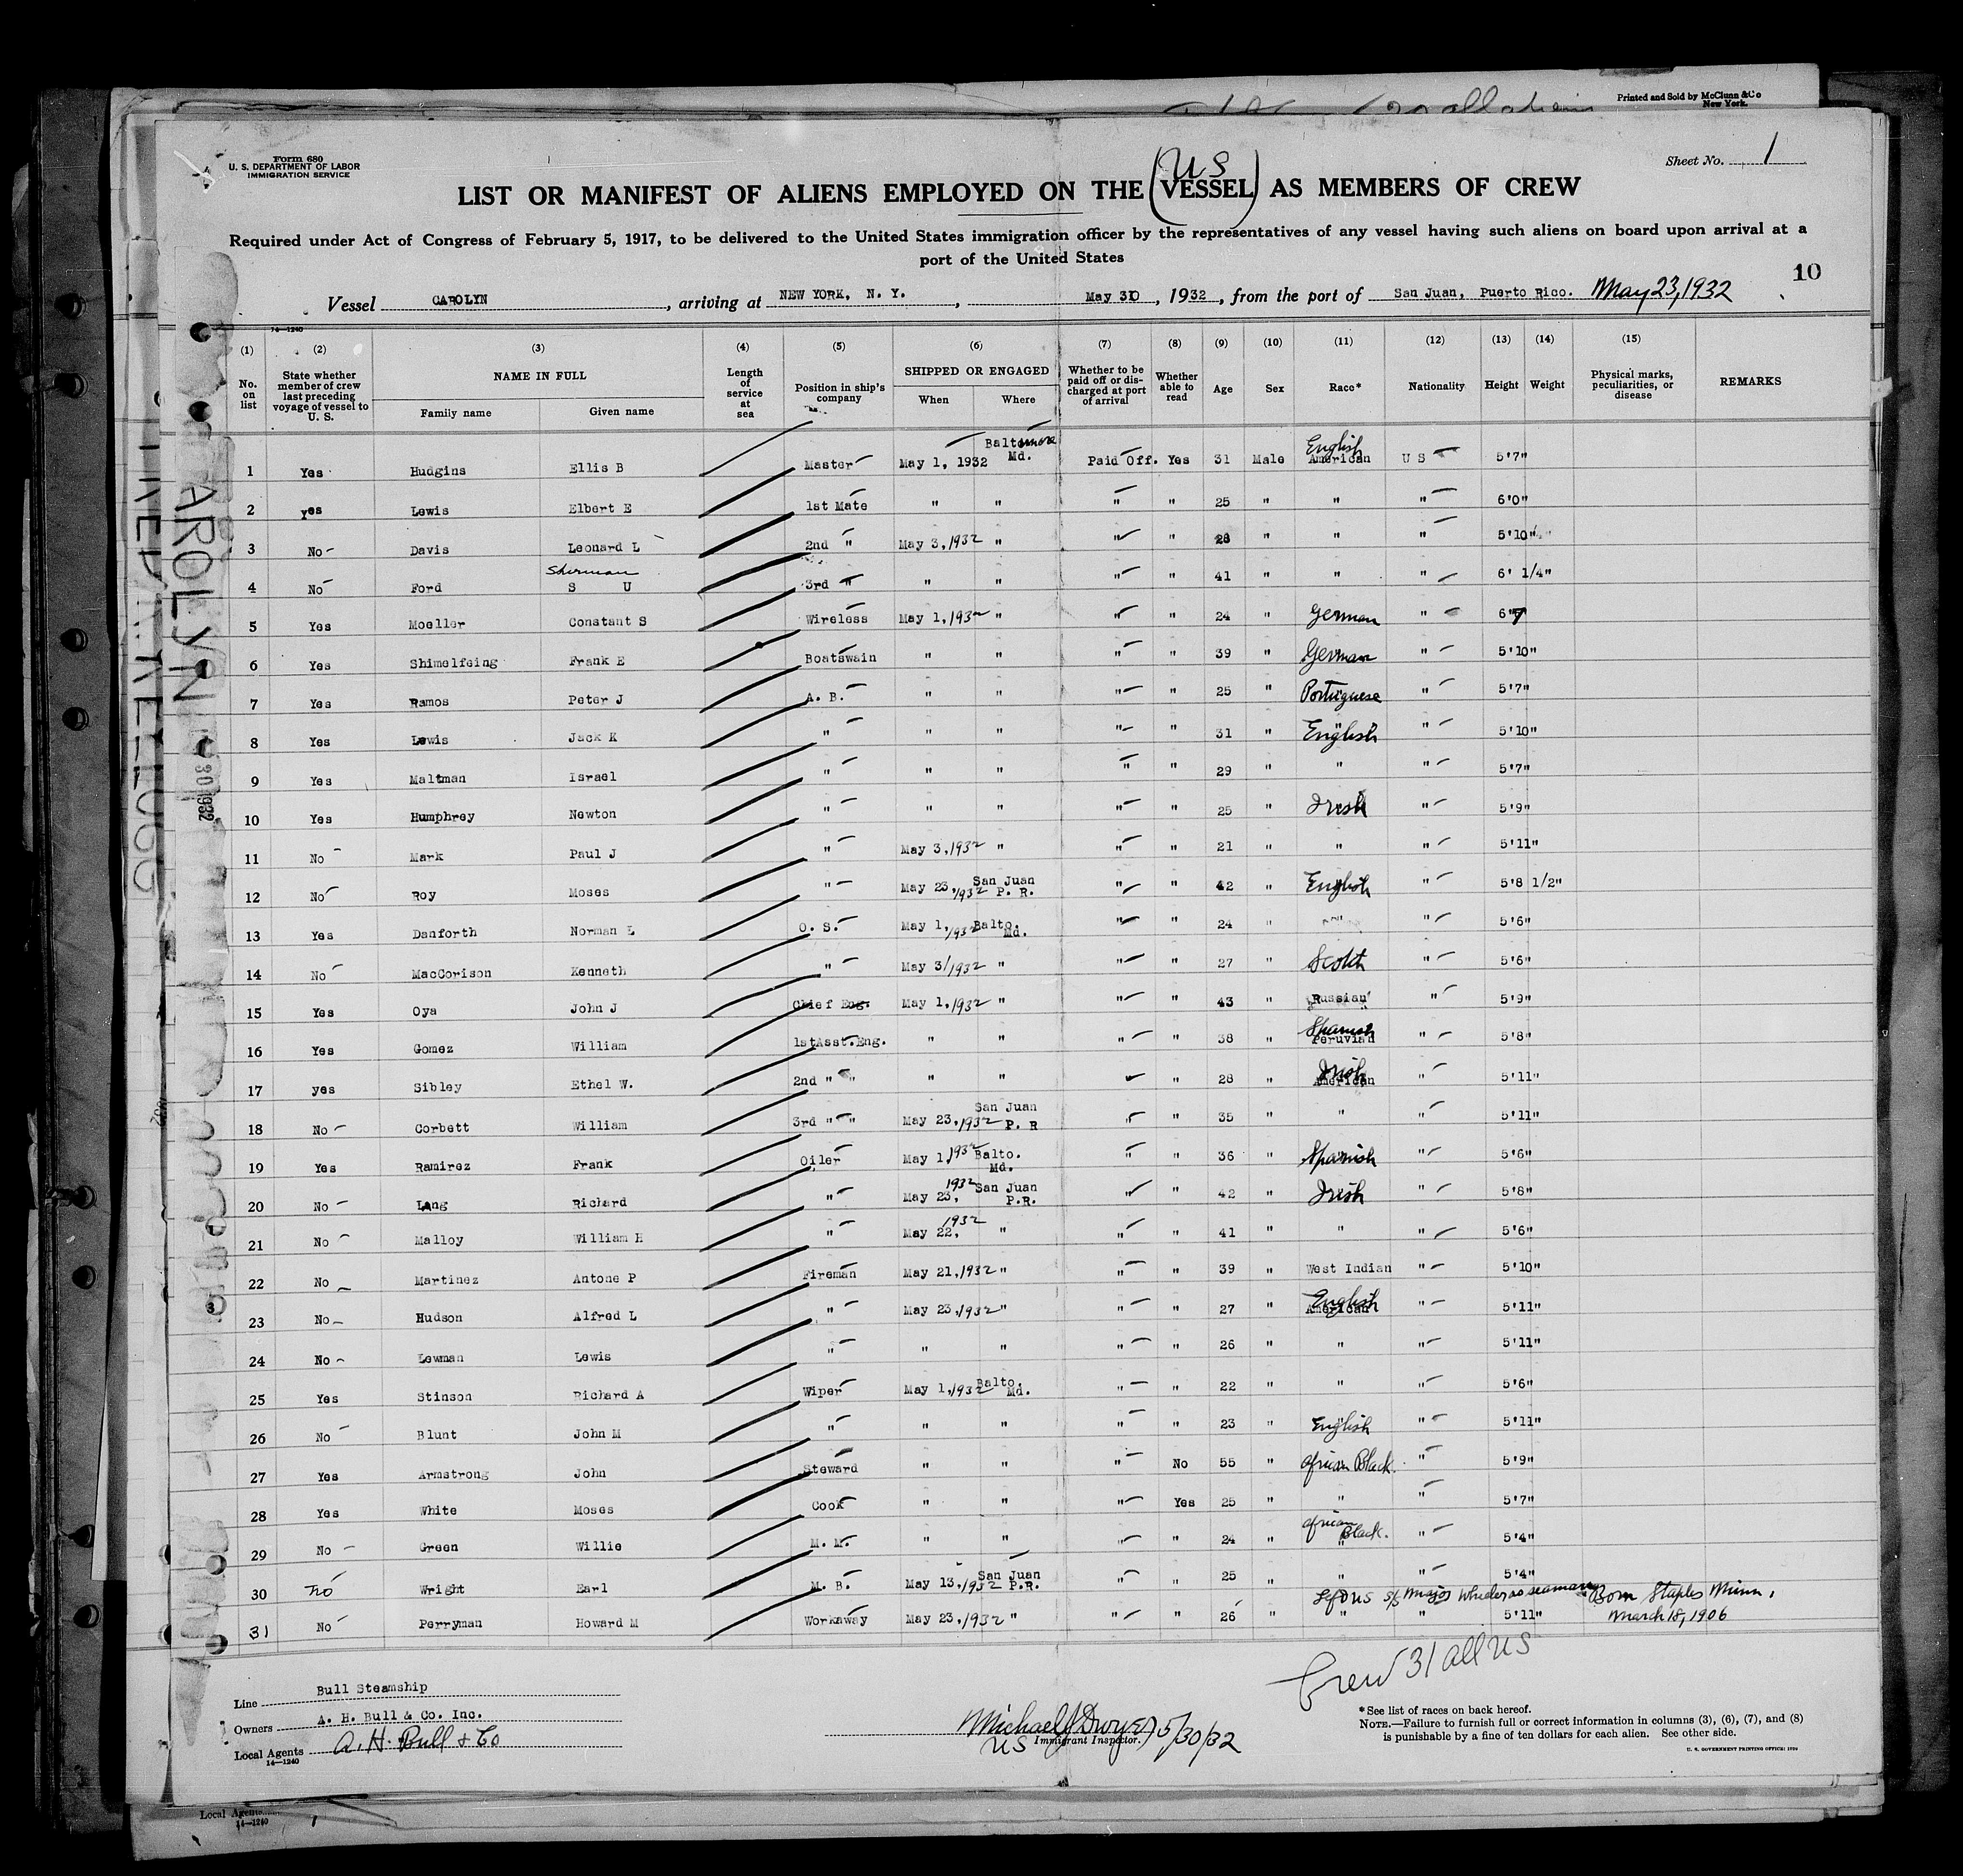 Printed and Sold by McClunn & Co
New York.
Form 680
U. S. DEPARTMENT OF LABOR
IMMIGRATION SERVICE
Sheet No. 1
US
LIST OR MANIFEST OF ALIENS EMPLOYED ON THE (VESSEL) AS MEMBERS OF CREW
Required under Act of Congress of February 5, 1917, to be delivered to the United States immigration officer by the representatives of any vessel having such aliens on board upon arrival at a
port of the United States
10
Vessel CAROLYN, arriving at NEW YORK, N. Y., May 30, 1932, from the port of San Juan, Puerto Rico. May 23, 1932
14—1240
(1) (2) (3) (4) (5) (6) (7) (8) (9) (10) (11) (12) (13) (14) (15)
No. on list State whether member of crew last preceding voyage of vessel to U. S. NAME IN FULL Family name Given name Length of service at sea Position in ship's company SHIPPED OR ENGAGED When Where Whether to be paid off or discharged at port of arrival Whether able to read Age Sex Race* Nationality Height Weight Physical marks, peculiarities, or disease REMARKS
1 Yes Hudgins Ellis B Master May 1, 1932 Baltimore Md. Paid Off. Yes 31 Male English American U S 5'7"
2 yes Lewis Elbert E 1st Mate " " " " 25 " " " 6'0"
3 No Davis Leonard L 2nd " May 3, 1932 " " " 28 " " " 5'10"
4 No Ford Sherman S U 3rd " " " " " 41 " " " 6' 1/4"
5 Yes Moeller Constant S Wireless May 1, 1932 " " " 24 " German "
6 Yes Shimelfeing Frank E Boatswain " " " " 39 " German " 5'10"
7 Yes Ramos Peter J A. B. " " " " 25 " Portuguese " 5'7"
8 Yes Lewis Jack K " " " " " 31 " English " 5'10"
9 Yes Maltman Israel " " " " " 29 " " " 5'7"
10 Yes Humphrey Newton " " " " " 25 " Irish " 5'9"
11 No Mark Paul J " May 3, 1932 " " " 21 " " " 5'11"
12 No Roy Moses " May 23, 1932 San Juan P. R. " " 42 " English " 5'8 1/2"
13 Yes Danforth Norman L O. S. May 1, 1932 Balto. Md. " " 24 " " " 5'6"
14 No MacCorison Kenneth " May 3/1932 " " " 27 " Scotch " 5'6"
15 Yes Oya John J Chief Eng. May 1, 1932 " " " 43 " Russian " 5'9"
16 Yes Gomez William 1stAsst.Eng. " " " " 38 " Spanish Peruvian " 5'8"
17 yes Sibley Ethel W. 2nd " " " " " 28 " Irish American " 5'11"
18 No Corbett William 3rd " " May 23, 1932 San Juan P. R " " 35 " " " 5'11"
19 Yes Ramirez Frank Oiler May 1, 1932 Balto. Md. " " 36 " Spanish " 5'6"
20 No Lang Richard " May 23, 1932 San Juan P.R. " " 42 " Irish " 5'8"
21 No Malloy William H " May 22, 1932 " " " 41 " " " 5'6"
22 No Martinez Antone P Fireman May 21, 1932 " " " 39 " West Indian " 5'10"
23 No Hudson Alfred L " May 23, 1932 " " " 27 " English American " 5'11"
24 No Lewman Lewis " " " " " 26 " " " 5'11"
25 Yes Stinson Richard A Wiper May 1, 1932 Balto. Md. " " 22 " " " 5'6"
26 No Blunt John M " " " " " 23 " English " 5'11"
27 Yes Armstrong John Steward " " " No 55 " African Black. " 5'9"
28 Yes White Moses Cook " " " Yes 25 " " " 5'7"
29 No Green Willie M. M. " " " " 24 " African Black. " 5'4"
30 No Wright Earl M. B. May 13, 1932 San Juan P.R. " " 25 " " " 5'4"
31 No Perryman Howard M Workaway May 23, 1932 " " " 26 " " " 5'11" Left US S/S Major Wheeler as seaman Born Staples Minn, March 18, 1906
Crew 31 all US
Line Bull Steamship
Owners A. H. Bull & Co. Inc.
Local Agents A. H. Bull & Co
14—1240
Michael J Dwyer 5/30/32
US Immigrant Inspector.
*See list of races on back hereof.
NOTE.—Failure to furnish full or correct information in columns (3), (6), (7), and (8)
is punishable by a fine of ten dollars for each alien. See other side.
U. S. GOVERNMENT PRINTING OFFICE:
CAROLYN
30 1932
Local Agents
14—1240